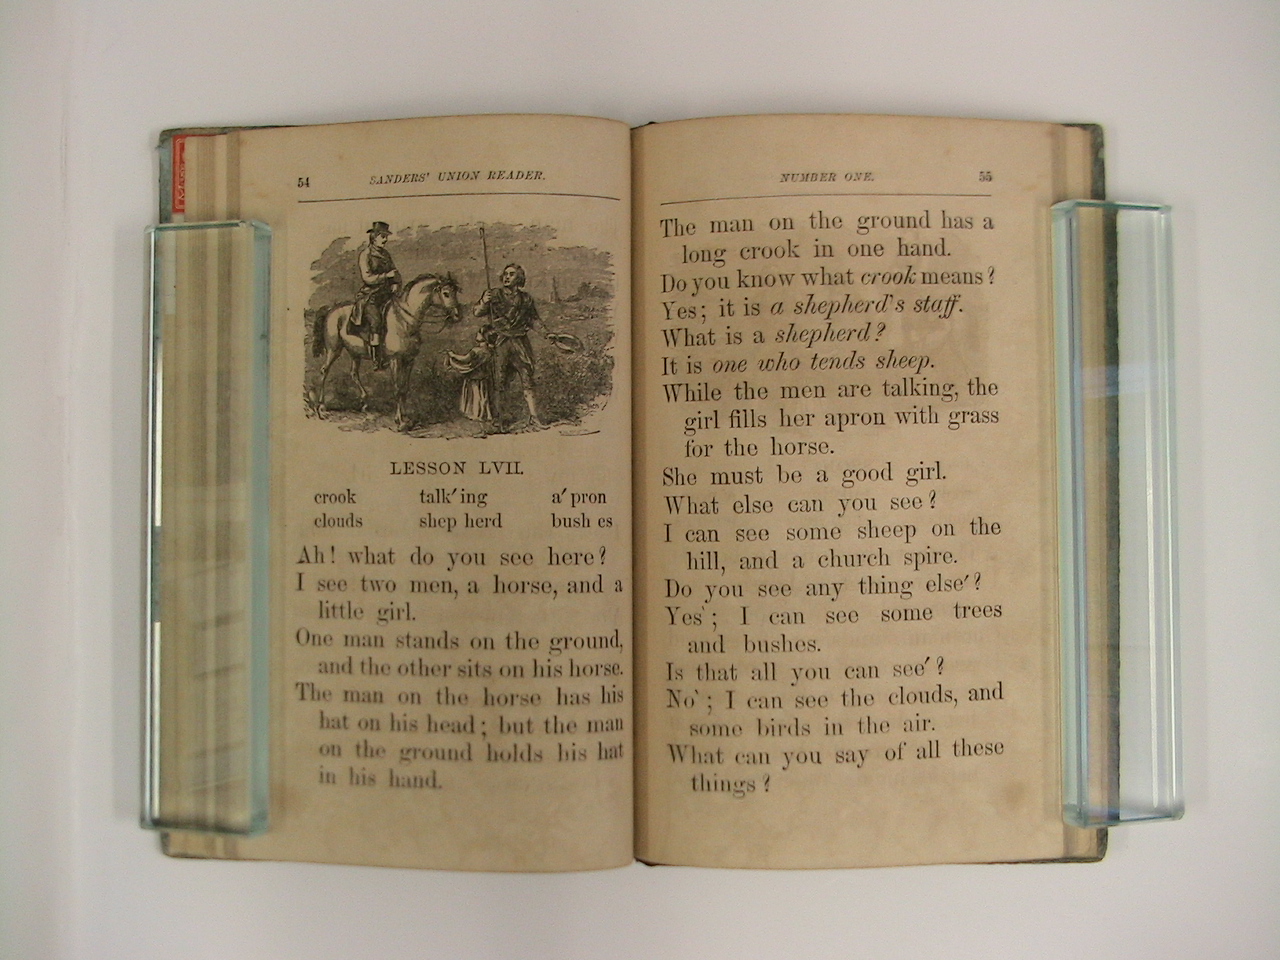 54 SANDERS' UNION READER.
LESSON LVII.
crook talk′ing a′pron
clouds shep herd bush es
Ah! what do you see here?
I see two men, a horse, and a
little girl.
One man stands on the ground,
and the other sits on his horse.
The man on the horse has his
hat on his head; but the man
on the ground holds his hat
in his hand.
NUMBER ONE. 55
The man on the ground has a
long crook in one hand.
Do you know what crook means?
Yes; it is a shepherd's staff.
What is a shepherd?
It is one who tends sheep.
While the men are talking, the
girl fills her apron with grass
for the horse.
She must be a good girl.
What else can you see?
I can see some sheep on the
hill, and a church spire.
Do you see any thing else′?
Yes‵; I can see some trees
and bushes.
Is that all you can see′?
No‵; I can see the clouds, and
some birds in the air.
What can you say of all these
things?